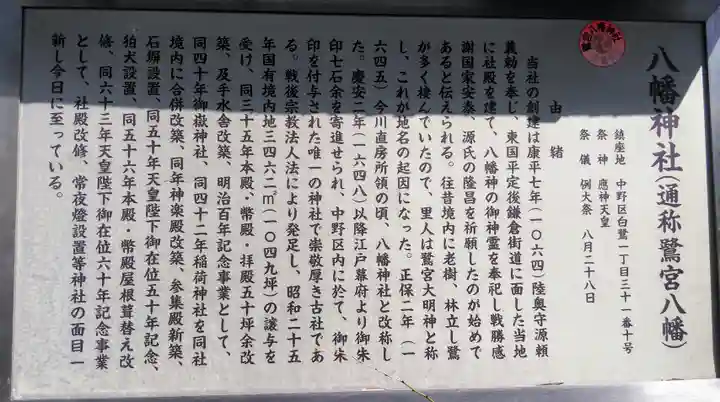 八幡神社(通称鷺宮八幡)
鎮座地 中野区白鷺一丁目三十一番十号
祭神 應神天皇
祭儀 例大祭 八月二十八日
由緒
当社の創建は康平七年(一〇六四)陸奥守源頼
義勅を奉じ、東国平定後鎌倉街道に面した当地
に社殿を建て、八幡神の御神霊を奉祀し戦勝感
謝国家安泰、源氏の隆昌を祈願したのが始めで
あると伝えられる。往昔境内に老樹、林立し鷺
が多く棲んでいたので、里人は鷺宮大明神と称
し、これが地名の起因になった。正保二年(一
六四五)今川直房所領の頃、八幡神社と改称し
た。慶安二年(一六四八)以降江戸幕府より御朱
印七石余を寄進せられ、中野区内に於て、御朱
印を付与された唯一の神社で崇敬厚き古社であ
る。戦後宗教法人法により発足し、昭和二十五
年国有境内地三四六二㎡(一〇四九坪)の譲与を
受け、同三十五年本殿・幣殿・拝殿五十坪余改
築、及手水舎改築、明治百年記念事業として、
同四十年御嶽神社、同四十二年稲荷神社を同社
境内に合併改築、同年神楽殿改築、参集殿新築、
石塀設置、同五十年天皇陛下御在位五十年記念、
狛犬設置、同五十六年本殿・幣殿屋根葺替え改
修、同六十三年天皇陛下御在位六十年記念事業
として、社殿改修、常夜燈設置等神社の面目一
新し今日に至っている。